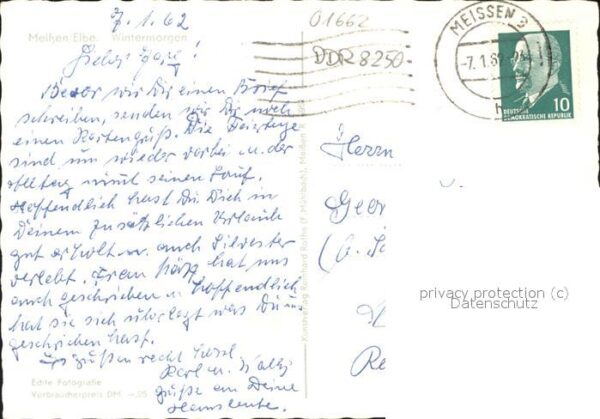 7.1.62
Meißen/Elbe. Wintermorgen
Lieber Georg!
Bevor wir Dir einen Brief
schreiben, senden wir Dir noch
einen Kartengruß. Die Feiertage
sind nun wieder vorbei u. der
Alltag nimmt seinen Lauf.
Hoffentlich hast Du Dich in
Deinem zusätzlichen Urlaub
gut erholt u. auch Silvester
verlebt. Frau hat uns
auch geschrieben u. hoffentlich
hat sie sich überlegt was Du
geschrieben hast.
grüßen recht herzl.
Karl u.
Grüße an Deine
Hausleute.
Echte Fotografie
Verbraucherpreis DM -.25
Kunstverlag Reinhard Rothe (F. Mürnbach), Meißen
01662
DDR 8250
MEISSEN 3
-7.1.62
h
DEUTSCHE
DEMOKRATISCHE REPUBLIK
10
Herrn
Geor
privacy protection (c)
Datenschutz